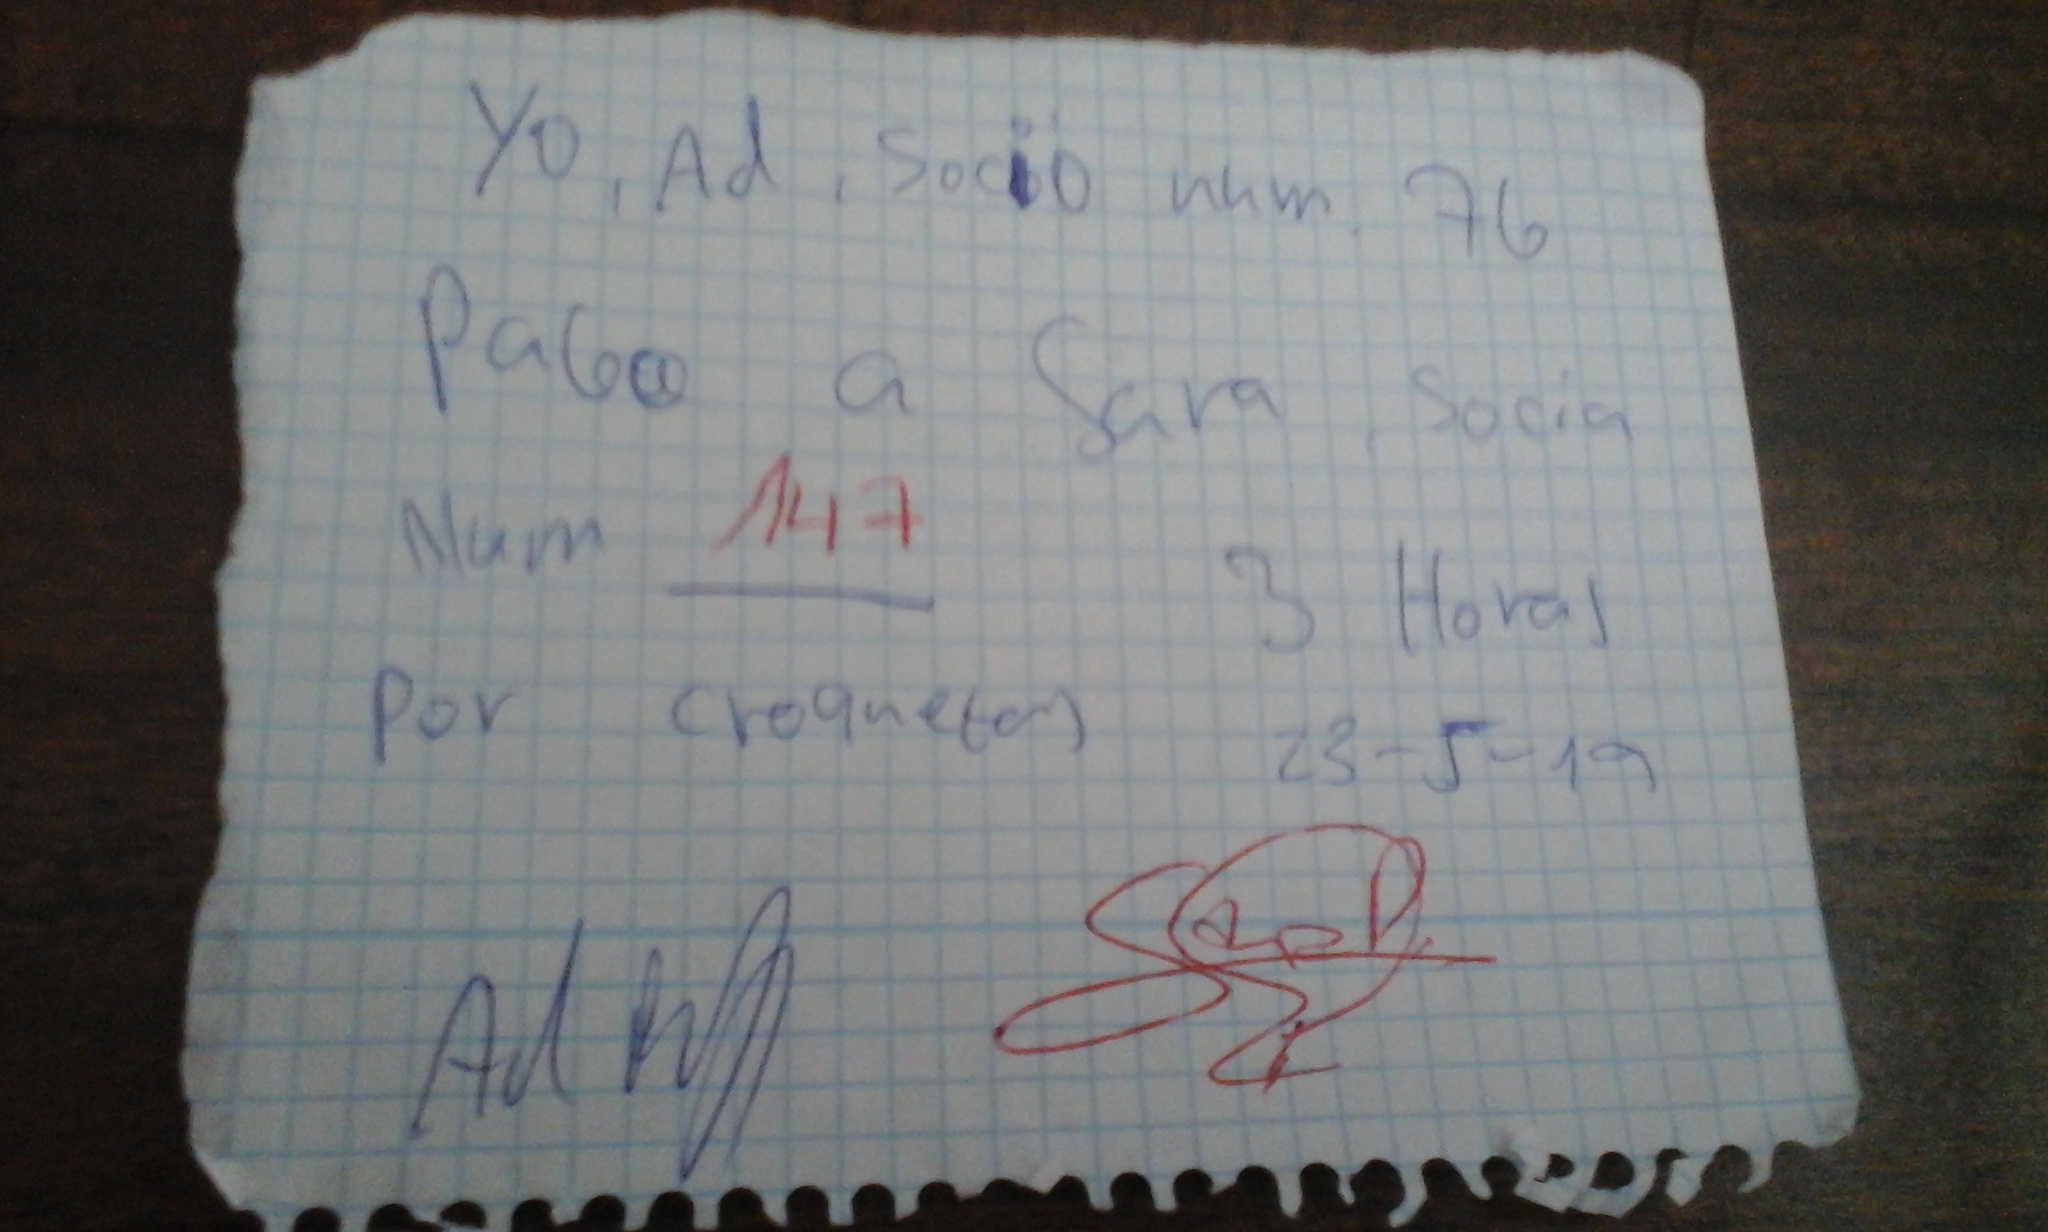 Yo, Ad, Socio num. 76
PaGo a Sara, Socia
Num 147 3 Horas
Por croquetas 23-5-19
Ad